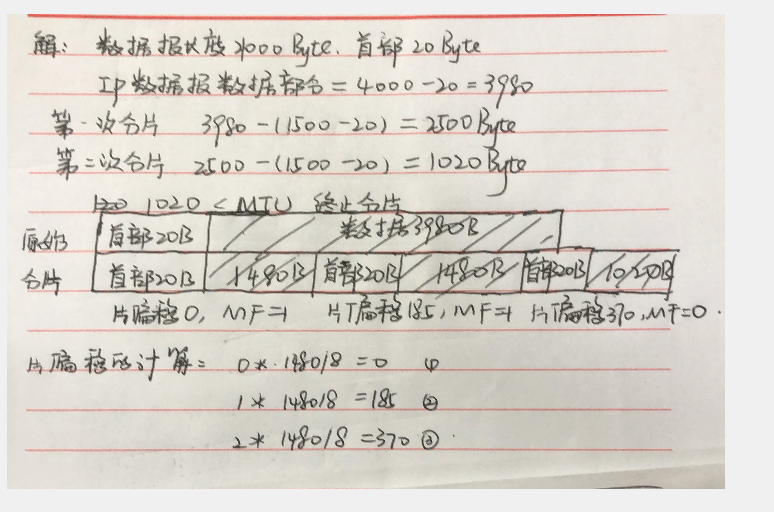 解: 数据报长度4000 Byte. 首部20Byte
IP数据报数据部分=4000-20=3980
第一次分片 3980-(1500-20)=2500Byte
第二次分片 2500-(1500-20)=1020Byte
1020 < MTU 终止分片
原始 首部20B 数据3980B
分片 首部20B 1480B 首部20B 1480B 首部20B 1020B
片偏移0, MF=1 片偏移185, MF=1 片偏移370, MF=0.
片偏移的计算: 0*1480/8=0 ①
1*1480/8=185 ②
2*1480/8=370 ③